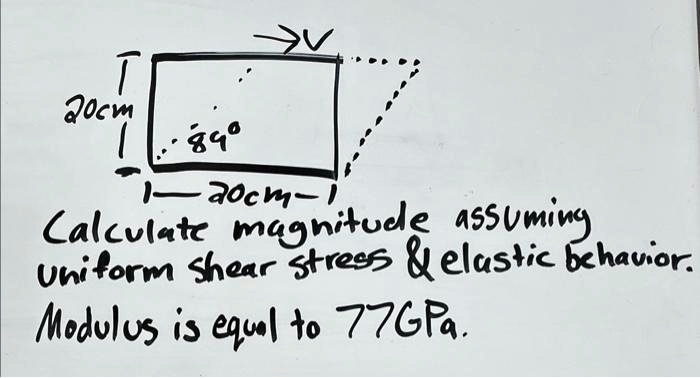 →V
20cm
89°
20cm
Calculate magnitude assuming
uniform shear stress & elastic behavior.
Modulus is equal to 77GPa.